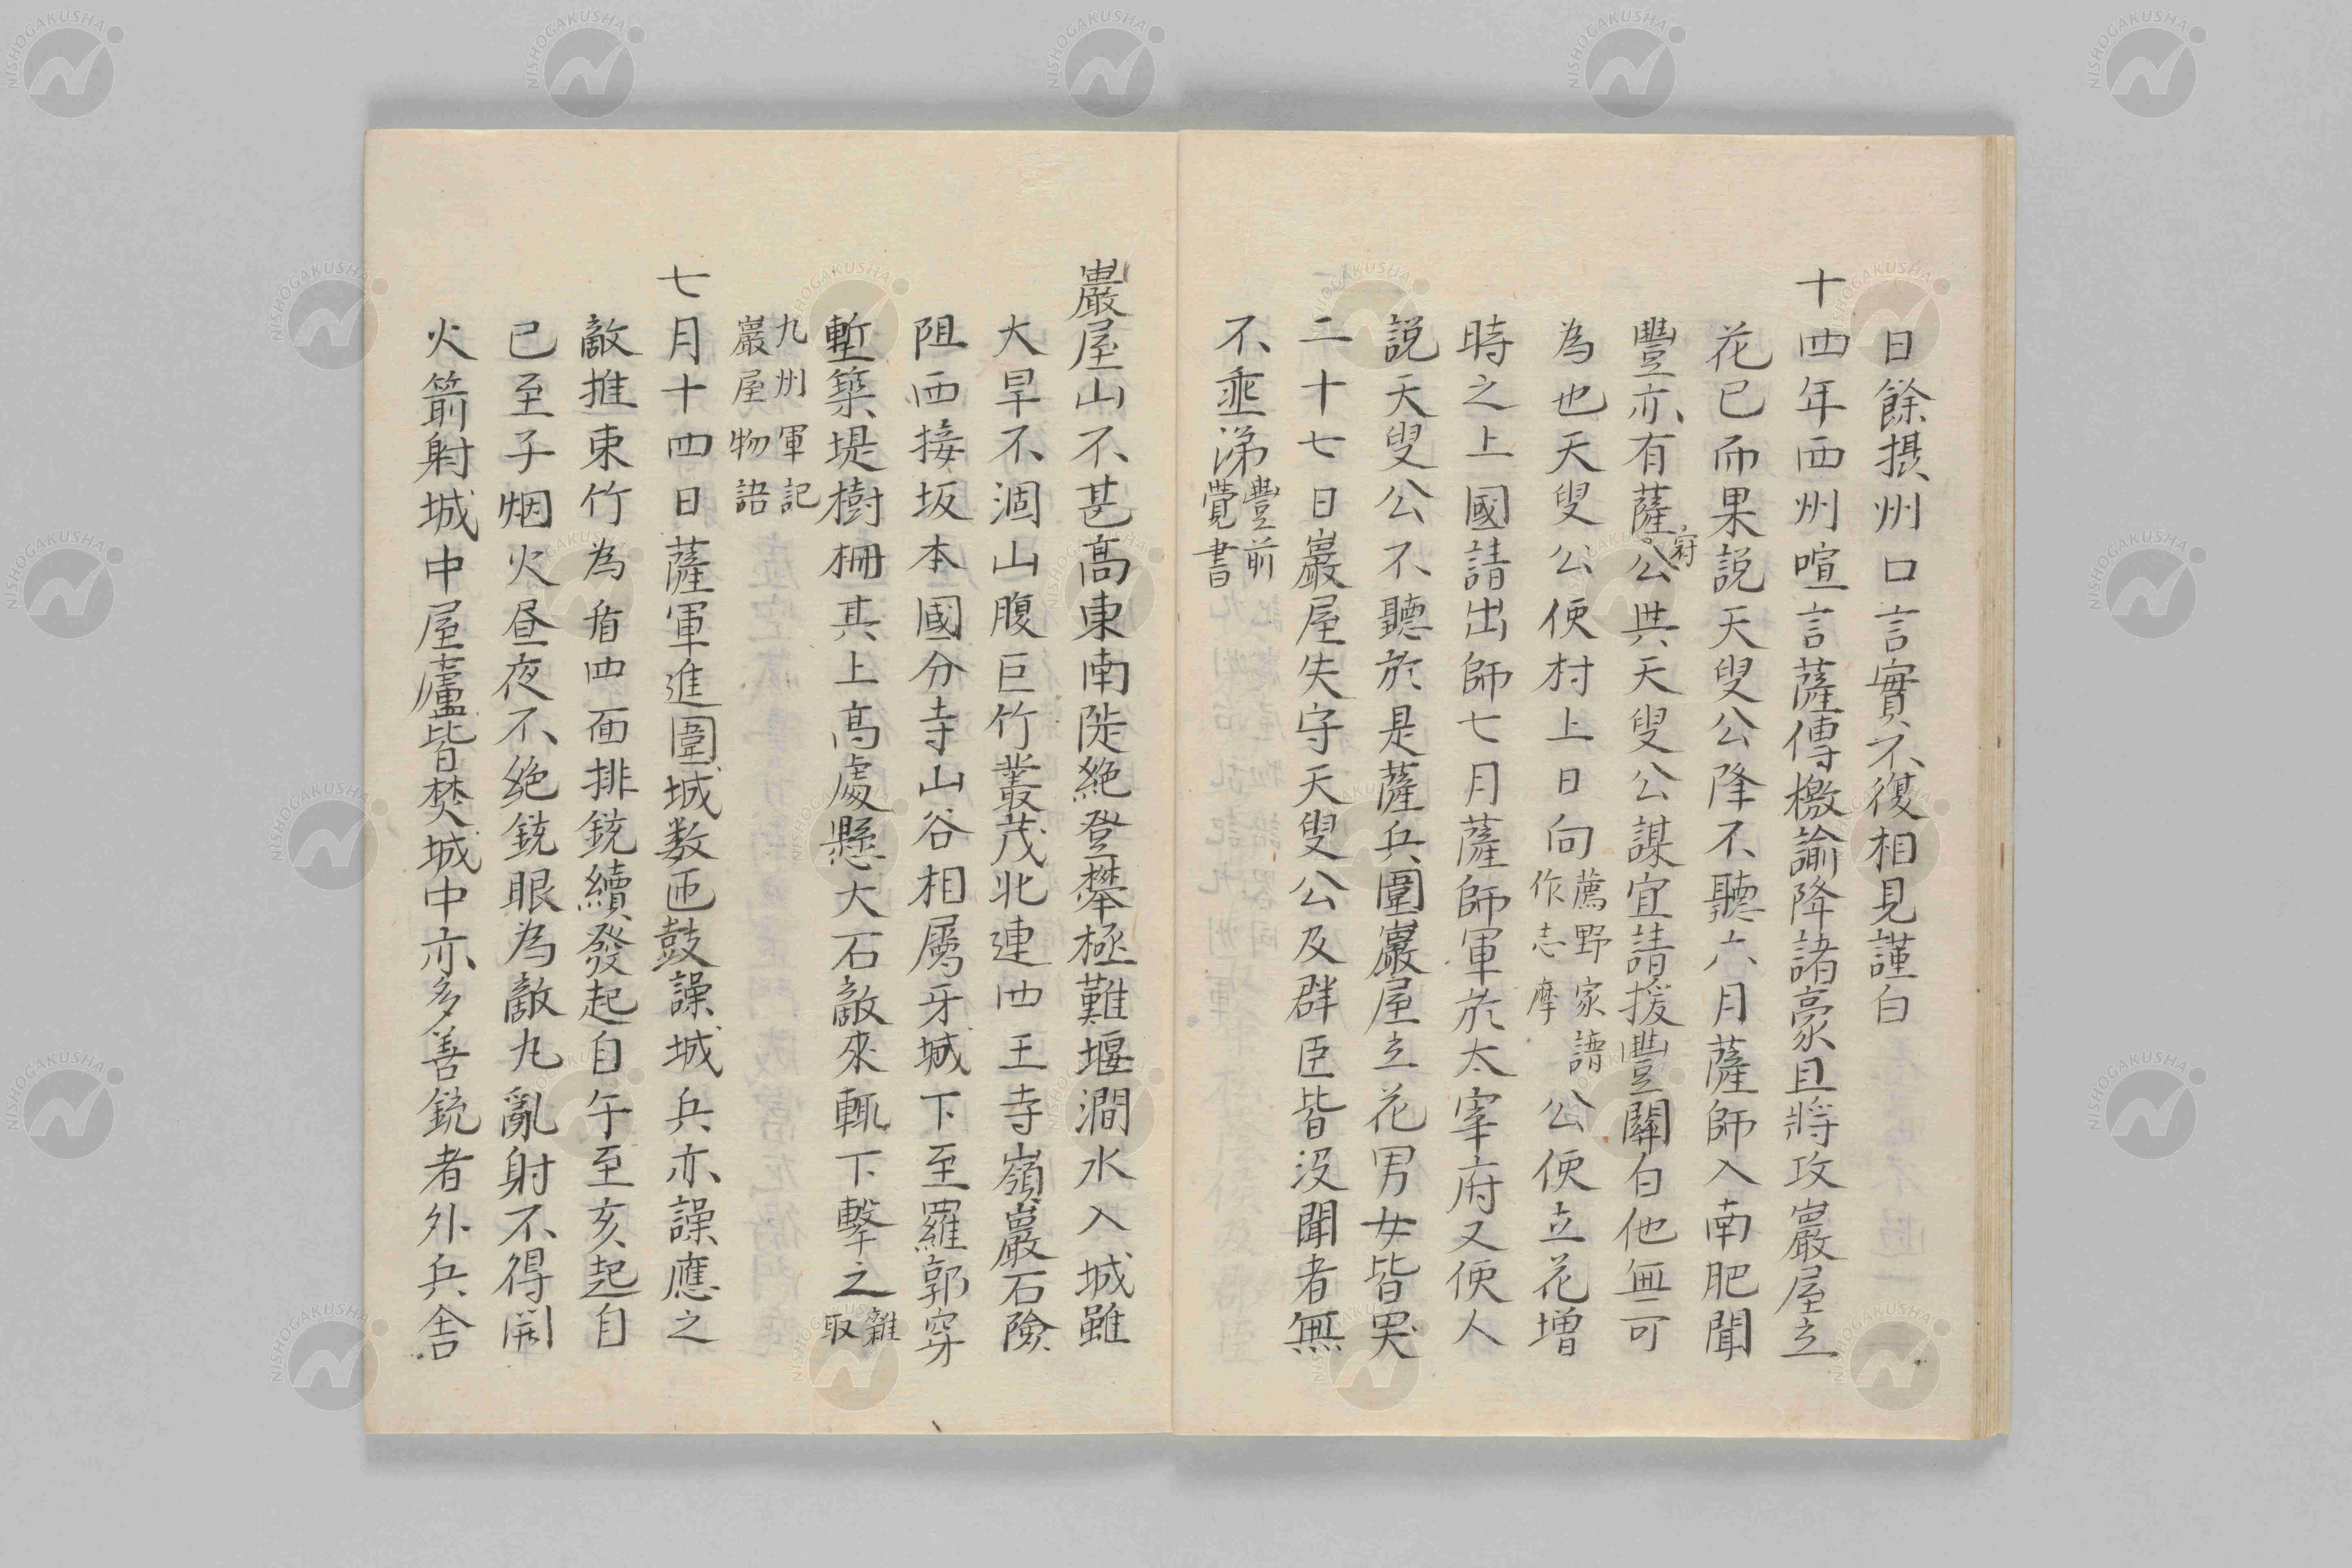 日餘摂州口言實不復相見謹白
十四年西州喧言薩傳檄諭降諸豪且將攻巖屋立
花已而果説天叟公降不聽六月薩師入南肥聞
豐亦有薩寇公與天叟公謀宜請援豐關白他無可
為也天叟公便村上日向薦野家譜作志摩公便立花增
時之上國請出師七月薩師軍於太宰府又便人
説天叟公不聽於是薩兵圍巖屋立花男女皆哭
二十七日巖屋失守天叟公及群臣皆没聞者無
不垂涕豐前覺書
巖屋山不甚高東南陡絶登攀極難堰澗水入城雖
大旱不涸山腹巨竹叢茂北連四王寺嶺巖石險
阻西接坂本國分寺山谷相屬牙城下至羅郭穿
塹築堤樹柵其上高處懸大石敵來輒下擊之雜取
九州軍記巖屋物語
七月十四日薩軍進圍城数匝鼓譟城兵亦譟應之
敵推東竹為盾四面排銃續發起自午至亥起自
已至子烟火昼夜不絶銃眼為敵丸亂射不得開
火箭射城中屋廬皆焚城中亦多善銃者外兵舎
NISHOGAKUSHA